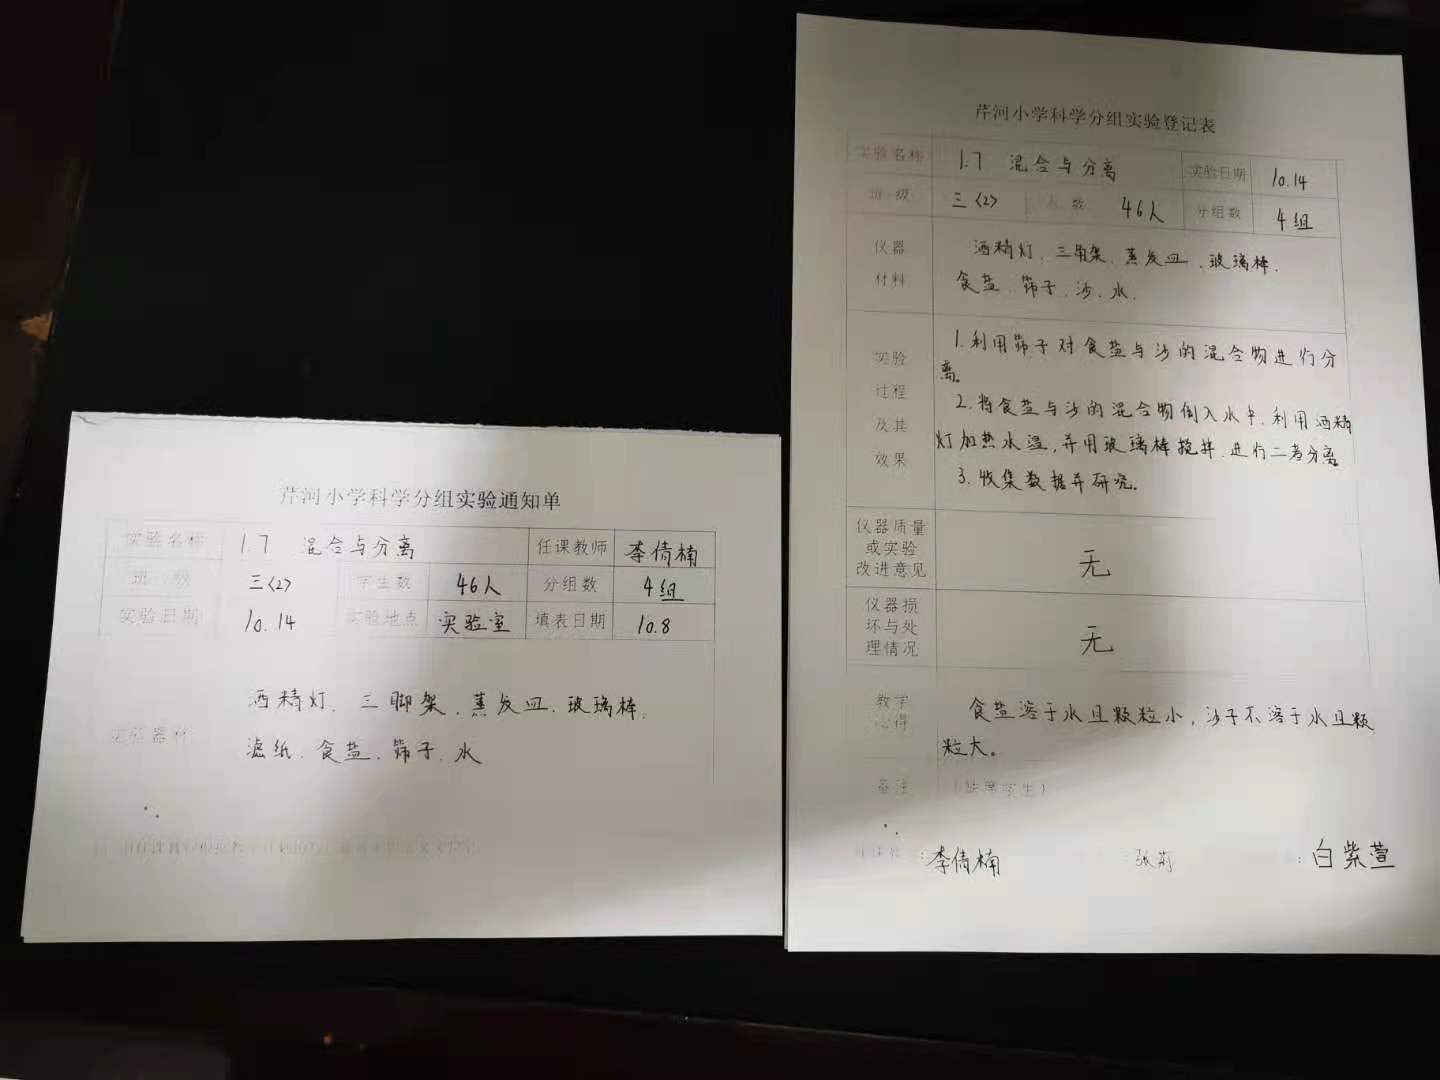 芹河小学科学分组实验通知单
实验名称 1.7 混合与分离 任课教师 李倩楠
班 级 三〈2〉 学生数 46人 分组数 4组
实验日期 10.14 实验地点 实验室 填表日期 10.8
实验器材
酒精灯、三脚架、蒸发皿、玻璃棒、
滤纸、食盐、筛子、水
芹河小学科学分组实验登记表
实验名称 1.7 混合与分离 实验日期 10.14
班 级 三〈2〉 人 数 46人 分组数 4组
仪器
材料
酒精灯、三角架、蒸发皿、玻璃棒、
食盐、筛子、沙、水、
实验
过程
及其
效果
1.利用筛子对食盐与沙的混合物进行分
离。
2.将食盐与沙的混合物倒入水中、利用酒精
灯加热水温,并用玻璃棒搅拌、进行二者分离
3.收集数据并研究。
仪器质量
或实验
改进意见
无
仪器损
坏与处
理情况
无
教学
心得
食盐溶于水且颗粒小,沙子不溶于水且颗
粒大。
备注 (缺席学生)
:李倩楠 张莉 :白紫萱